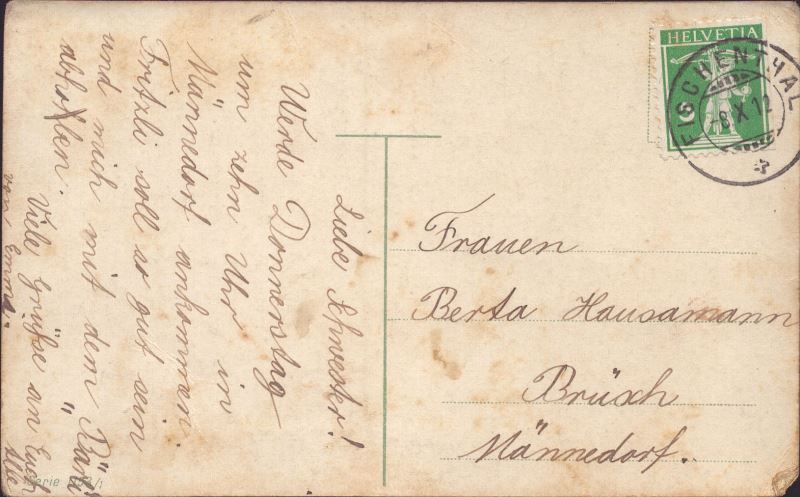 Liebe Schwester!
Werde Donnerstag
um zehn Uhr in
Männedorf ankommen.
Fritzli soll so gut sein
und mich mit dem
abholen.
Viele Grüße an Euch
Alle
von Emma.
HELVETIA
FISCHENTHAL
-8.X.12
Frauen
Berta Hausamann
Brüsch
Männedorf.
Serie